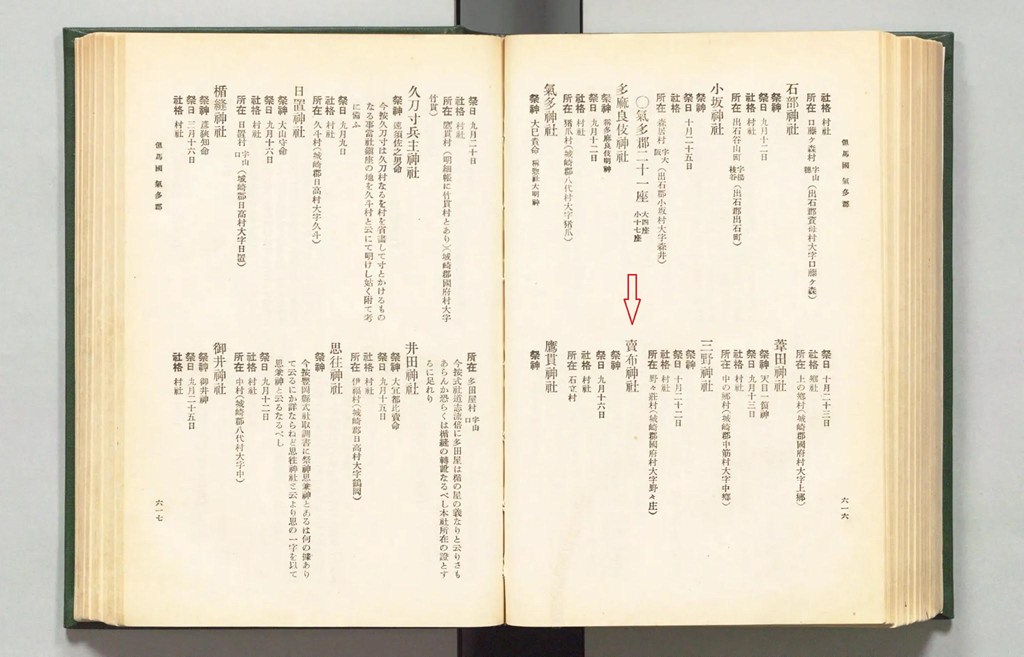 但馬國 氣多郡
社格 村社
所在 口藤ケ森村 字山(出石郡資母村大字口藤ケ森)
石部神社
祭神
祭日 九月十二日
社格 村社
所在 出石谷山町(出石郡出石町)
小坂神社
祭神
祭日 十月二十五日
社格 村社
所在 森居村 字大(出石郡小坂村大字森井)
〇氣多郡二十一座 大四座 小十七座
多麻良伎神社
祭神 稱多麻良伎明神
祭日 九月十二日
社格 村社
所在 猪爪村(城崎郡八代村大字猪爪)
氣多神社
祭神 大己貴命 稱惣社大明神
祭日 十月二十三日
社格 鄉社
所在 上の鄉村(城崎郡國府村大字上鄉)
葦田神社
祭神 天目一箇神
祭日 九月十三日
社格 村社
所在 中の鄉村(城崎郡中筋村大字中鄉)
三野神社
祭神
祭日 十月二十二日
社格 村社
所在 野々莊村(城崎郡國府村大字野々庄)
賣布神社
祭神
祭日 九月十六日
社格 村社
所在 石立村
鷹貫神社
祭神
六一六
祭日 九月二十日
社格 村社
所在 鷹貫村(明細帳に竹貫村とあり)(城崎郡國府村大字
竹貫)
久刀寸兵主神社
祭神 速須佐之男命
今按久刀寸は久刀村なるを村を省畵して寸とかけるもの
なる事當社鎭座の地を久斗村と云にて明けし姑く附て考
に備ふ
祭日 九月九日
社格 村社
所在 久斗村(城崎郡日高村大字久斗)
日置神社
祭神 大山守命
祭日 九月十六日
社格 村社
所在 日置村 字山口(城崎郡日高村大字日置)
楯縫神社
祭神 彦狹知命
祭日 三月十六日
社格 村社
所在 多田屋村 字山口
今按式社道志流倍に多田屋は楯の屋の義なりと云りさも
あらんか恐らくは楯縫の轉訛なるべし本社所在の證とす
るに足れり
井田神社
祭神 大冝都比賣命
祭日 九月十五日
社格 村社
所在 伊福村(城崎郡日高村大字鶴岡)
思往神社
祭神
今按豐岡縣式社取調書に祭神思兼神とあるは何の據あり
て云るにか詳ならねど思往神社と云より思の一字を以て
思兼神と云るなるべし
祭日 九月十二日
社格 村社
所在 中村(城崎郡八代村大字中)
御井神社
祭神 御井神
祭日 九月二十五日
社格 村社
但馬國 氣多郡
六一七